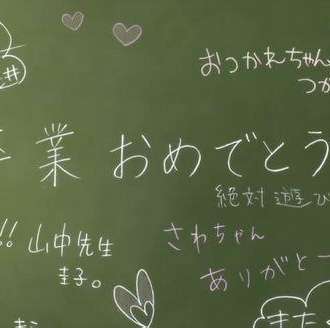 おつかれちゃん
つか
卒業 おめでとう
絶対 遊び
!! 山中先生
圭子。
さわちゃん
ありがとー
またね